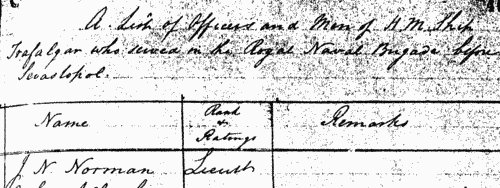 A List of Officers and Men of H.M. Ship
Trafalgar who served in the Royal Naval Brigade before
Sevastopol.
Name
Rank
&
Ratings
Remarks
J. N. Norman
Lieut